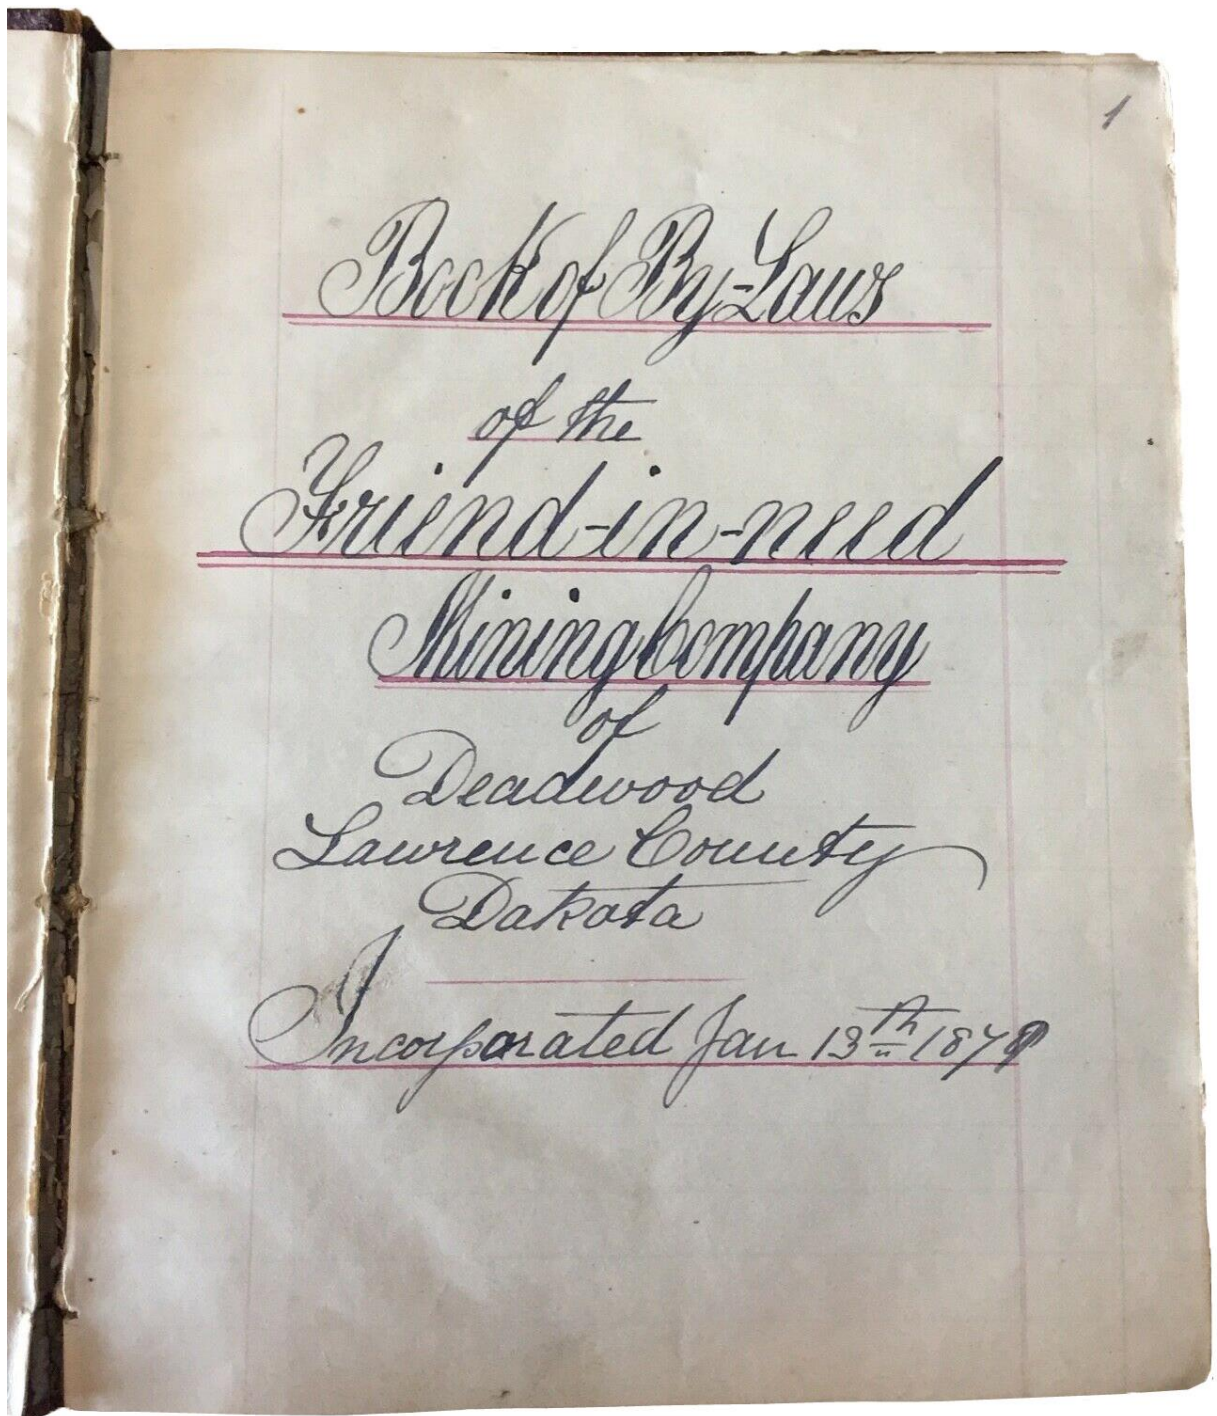 1
Book of By-Laws
of the
Friend-in-need
Mining Company
of
Deadwood
Lawrence County
Dakota
Incorporated Jan 13th 1879